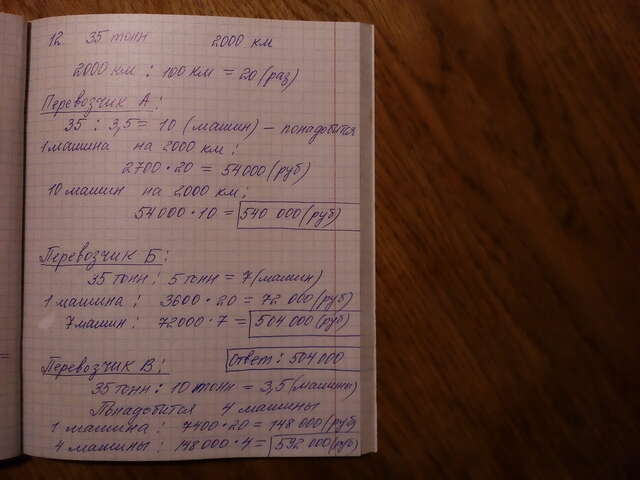 12 35 тонн 2000 км
2000 км : 100 км = 20 (раз)
Перевозчик А:
35 : 3,5 = 10 (машин) – понадобится
1 машина на 2000 км:
2700 · 20 = 54000 (руб)
10 машин на 2000 км:
54000 · 10 = 540 000 (руб)
Перевозчик Б:
35 тонн : 5 тонн = 7 (машин)
1 машина: 3600 · 20 = 72 000 (руб)
7 машин: 72000 · 7 = 504 000 (руб)
Ответ: 504 000
Перевозчик В:
35 тонн : 10 тонн = 3,5 (машины)
Понадобится 4 машины
1 машина: 7400 · 20 = 148 000 (руб)
4 машины: 148000 · 4 = 592 000 (руб)